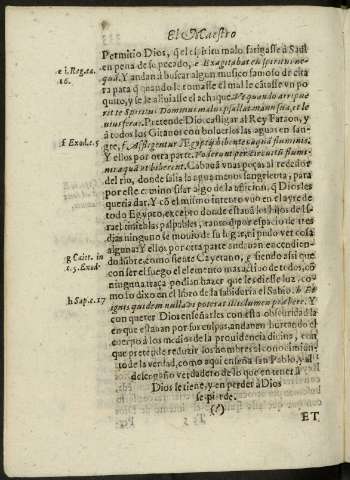 El Maestro
Permitio Dios, q̃ el espiritu malo fatigasse à Saul
en pena de su pecado, e Exagitabat eũ spiritus ne-
quã. Y andan à buscar algun musico famoso de cita
ra para q̃ quando le tomasse el mal le cãtasse vn po
quito, y se le aliuiasse el achaque. Et quando arripue
rit te Spiritus Domini malus psallat manu sua, et le
uius feras. Pretende Dios castigar al Rey Faraon, y
à todos los Gitanos con boluerles las aguas en san-
gre, f. Affligentur Aegyptij bibentes aquã fluminis.
Y ellos por otra parte. Foderunt per circuitũ flumi-
nis aquã vt biberent. Cabauã vnas poças al rededor
del rio, donde salia la agua menos sangrienta, para
por este camino
queria dar. Y cõ el mismo intento vno en el ayre de
todo Egypto, excepto donde estauã los hijos de Is-
rael tinieblas palpables, tanto q̃ por espacio de tres
dias ninguno se mouio de su lugar, ni pudo ver cosa
alguna: Y ellos por otra parte andauan encendien-
do lũbre, como siente Cayetano, g siendo assi que
con ser el fuego el elemento mas actiuo de todos, cõ
ninguna traça podian hazer que les diesse luz: co-
mo lo dixo en el libro de la sabiduria el Sabio. h Et
ignis quidem nulla vis poterat illis lumen præbere. Y
con querer Dios enseñarles con esta obscuridad la
en que estauan por sus culpas, andauan hurtando el
cuerpo à los medios de la prouidencia diuina, con
que pretẽde reduzir los hombres al conocimiẽn-
to de la verdad, como aqui enseña san Pablo, y al
desengaño verdadero de lo que en tener à
Dios se tiene, y en perder à Dios
se pierde.
(?)
ET
e 1. Reg. c.
16.
f Exod. c. 5
g Caiet. in
c. 5. Exod.
h Sap. c. 17